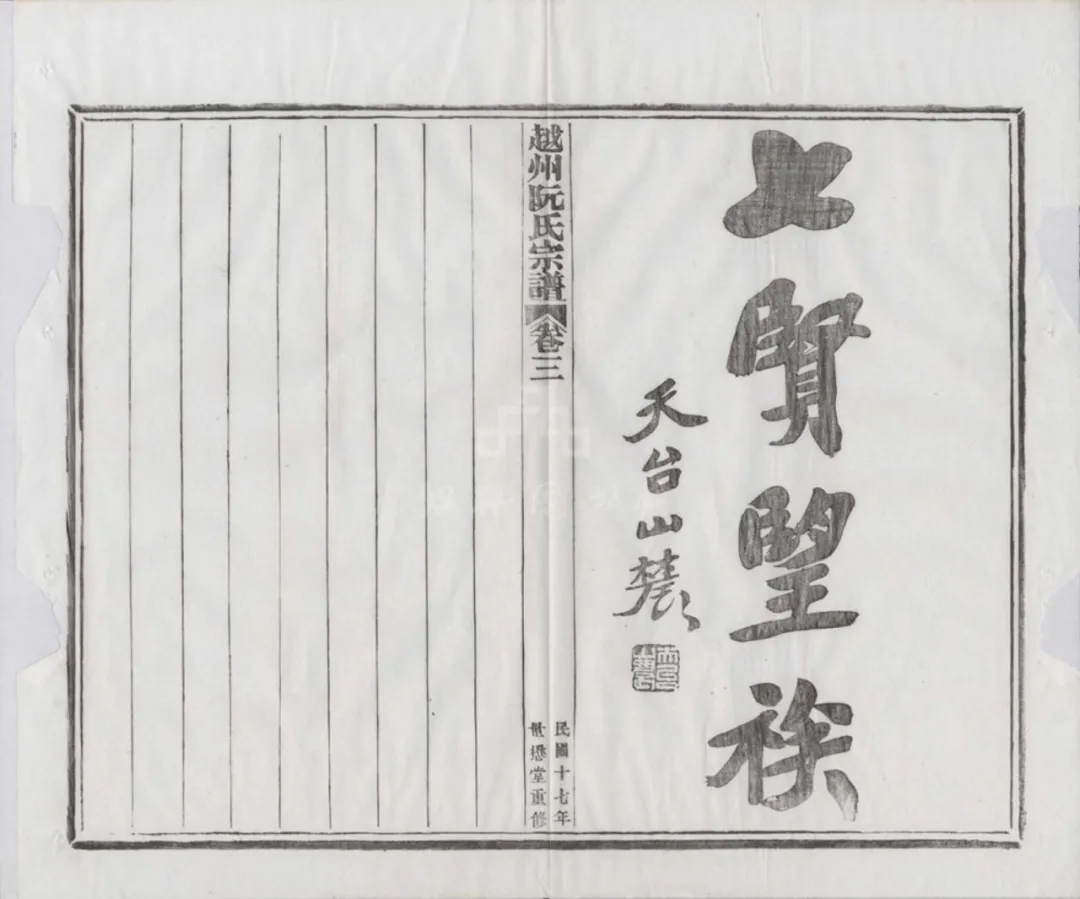 上賢望族
天台山農
天台山農
越州阮氏宗譜 卷三
民國十七年
世懋堂重修